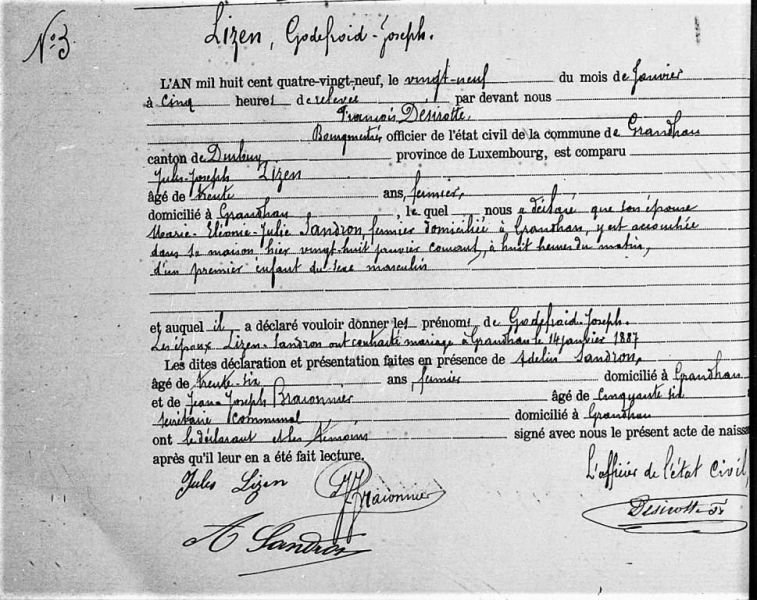 N° 3
Lizen, Godefroid-Joseph.
L'AN mil huit cent quatre-vingt-neuf, le vingt-neuf du mois de Janvier
à cinq heures de relevée par devant nous
François Désirotte,
Bourgmestre officier de l'état civil de la commune de Grandhan
canton de Durbuy province de Luxembourg, est comparu
Jules-Joseph Lizen
âgé de trente ans, fermier,
domicilié à Grandhan, lequel nous a déclaré que son épouse
Marie-Eléonie-Julie Sandron, fermier domiciliée à Grandhan, y est accouchée
dans sa maison hier vingt-huit janvier courant, à huit heures du matin,
d'un premier enfant du sexe masculin
et auquel il a déclaré vouloir donner les prénoms de Godefroid-Joseph.
Les époux Lizen-Sandron ont contracté mariage à Grandhan le 14 janvier 1887
Les dites déclaration et présentation faites en présence de Adelin Sandron,
âgé de trente-six ans, fermier domicilié à Grandhan
et de Jean-Joseph Braconnier âgé de cinquante six
secrétaire communal domicilié à Grandhan
ont le déclarant et les témoins signé avec nous le présent acte de naiss
après qu'il leur en a été fait lecture.
L'officier de l'état civil,
Jules Lizen JJ Braconnier
Desirotte Fs
A Sandron